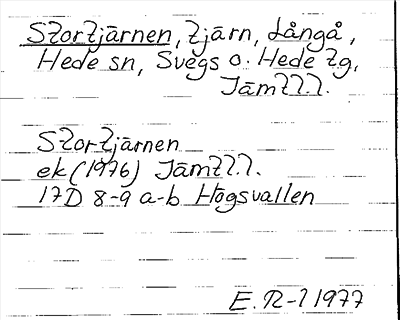 Stortjärnen, tjärn, Långå,
Hede sn, Svegs o. Hede tg,
Jämtl.l.
Stortjärnen
ek (1976) Jämtl.l.
17D 8-9 a-b Högsvallen
E. R-l 1977